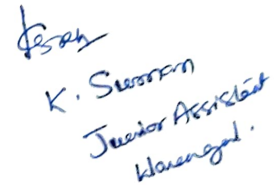 K. Suman
Junior Assistant
Warangal.